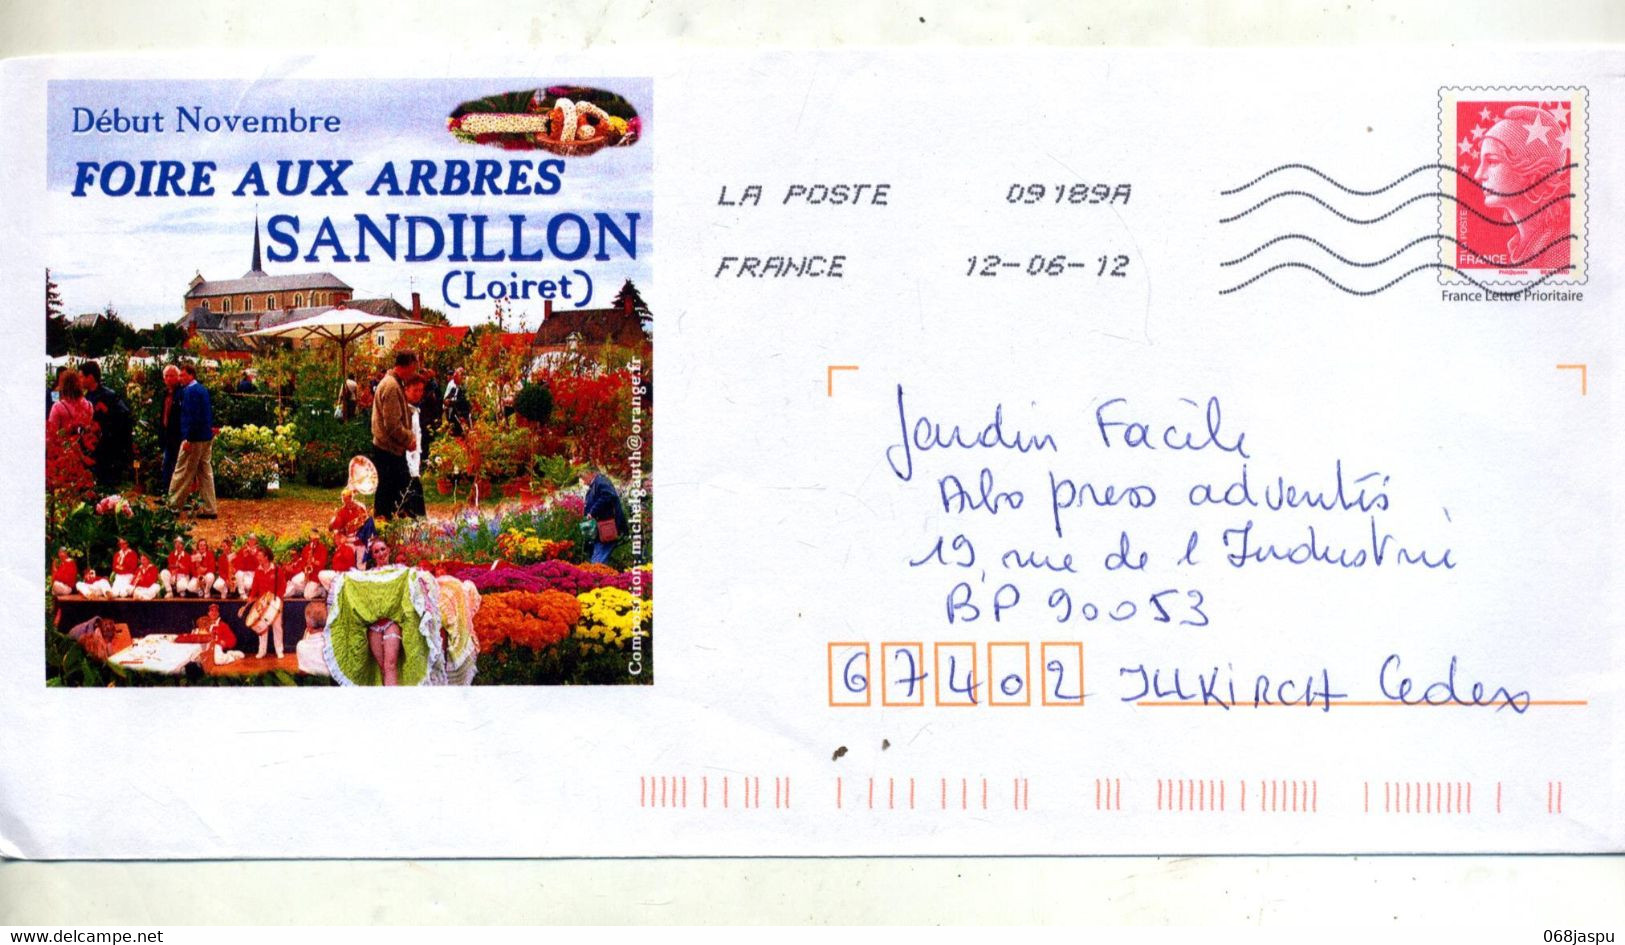 Début Novembre
FOIRE AUX ARBRES
SANDILLON
(Loiret)
Composition: michelgauth@orange.fr
LA POSTE 09189A
FRANCE 12-06-12
LA POSTE
FRANCE
Phil@poste BEAUJARD
France Lettre Prioritaire
Jardin Facile
Abo press adventis
19, rue de l'Industrie
BP 90053
67402 ILLKIRCH Cedex
delcampe.net
068jaspu